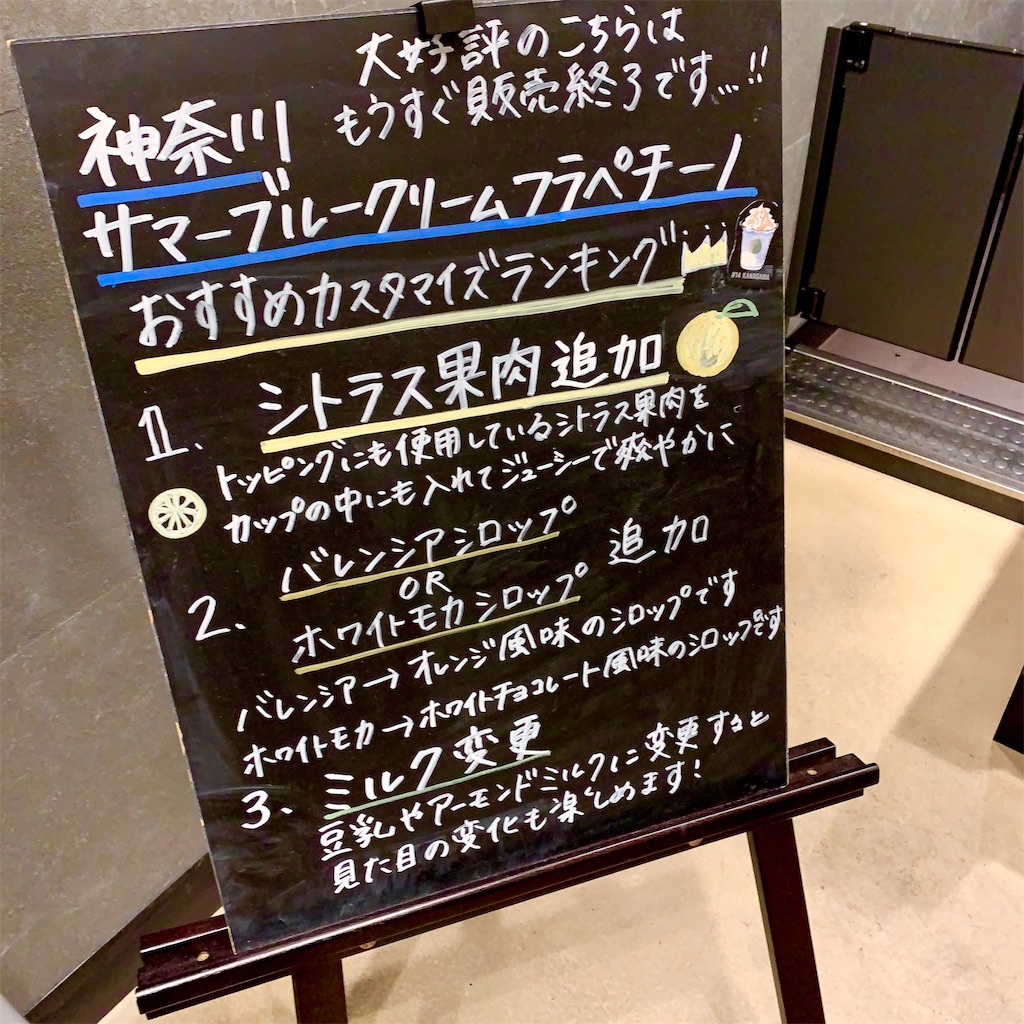 大好評のこちらは
もうすぐ販売終了です...!!
神奈川
サマーブルークリームフラペチーノ
おすすめカスタマイズランキング
#14 KANAGAWA
1. シトラス果肉追加
トッピングにも使用しているシトラス果肉を
カップの中にも入れてジューシーで爽やかに
2. バレンシアシロップ
OR 追加
ホワイトモカシロップ
バレンシア→オレンジ風味のシロップです
ホワイトモカ→ホワイトチョコレート風味のシロップです
3. ミルク変更
豆乳やアーモンドミルクに変更すると
見た目の変化も楽しめます!